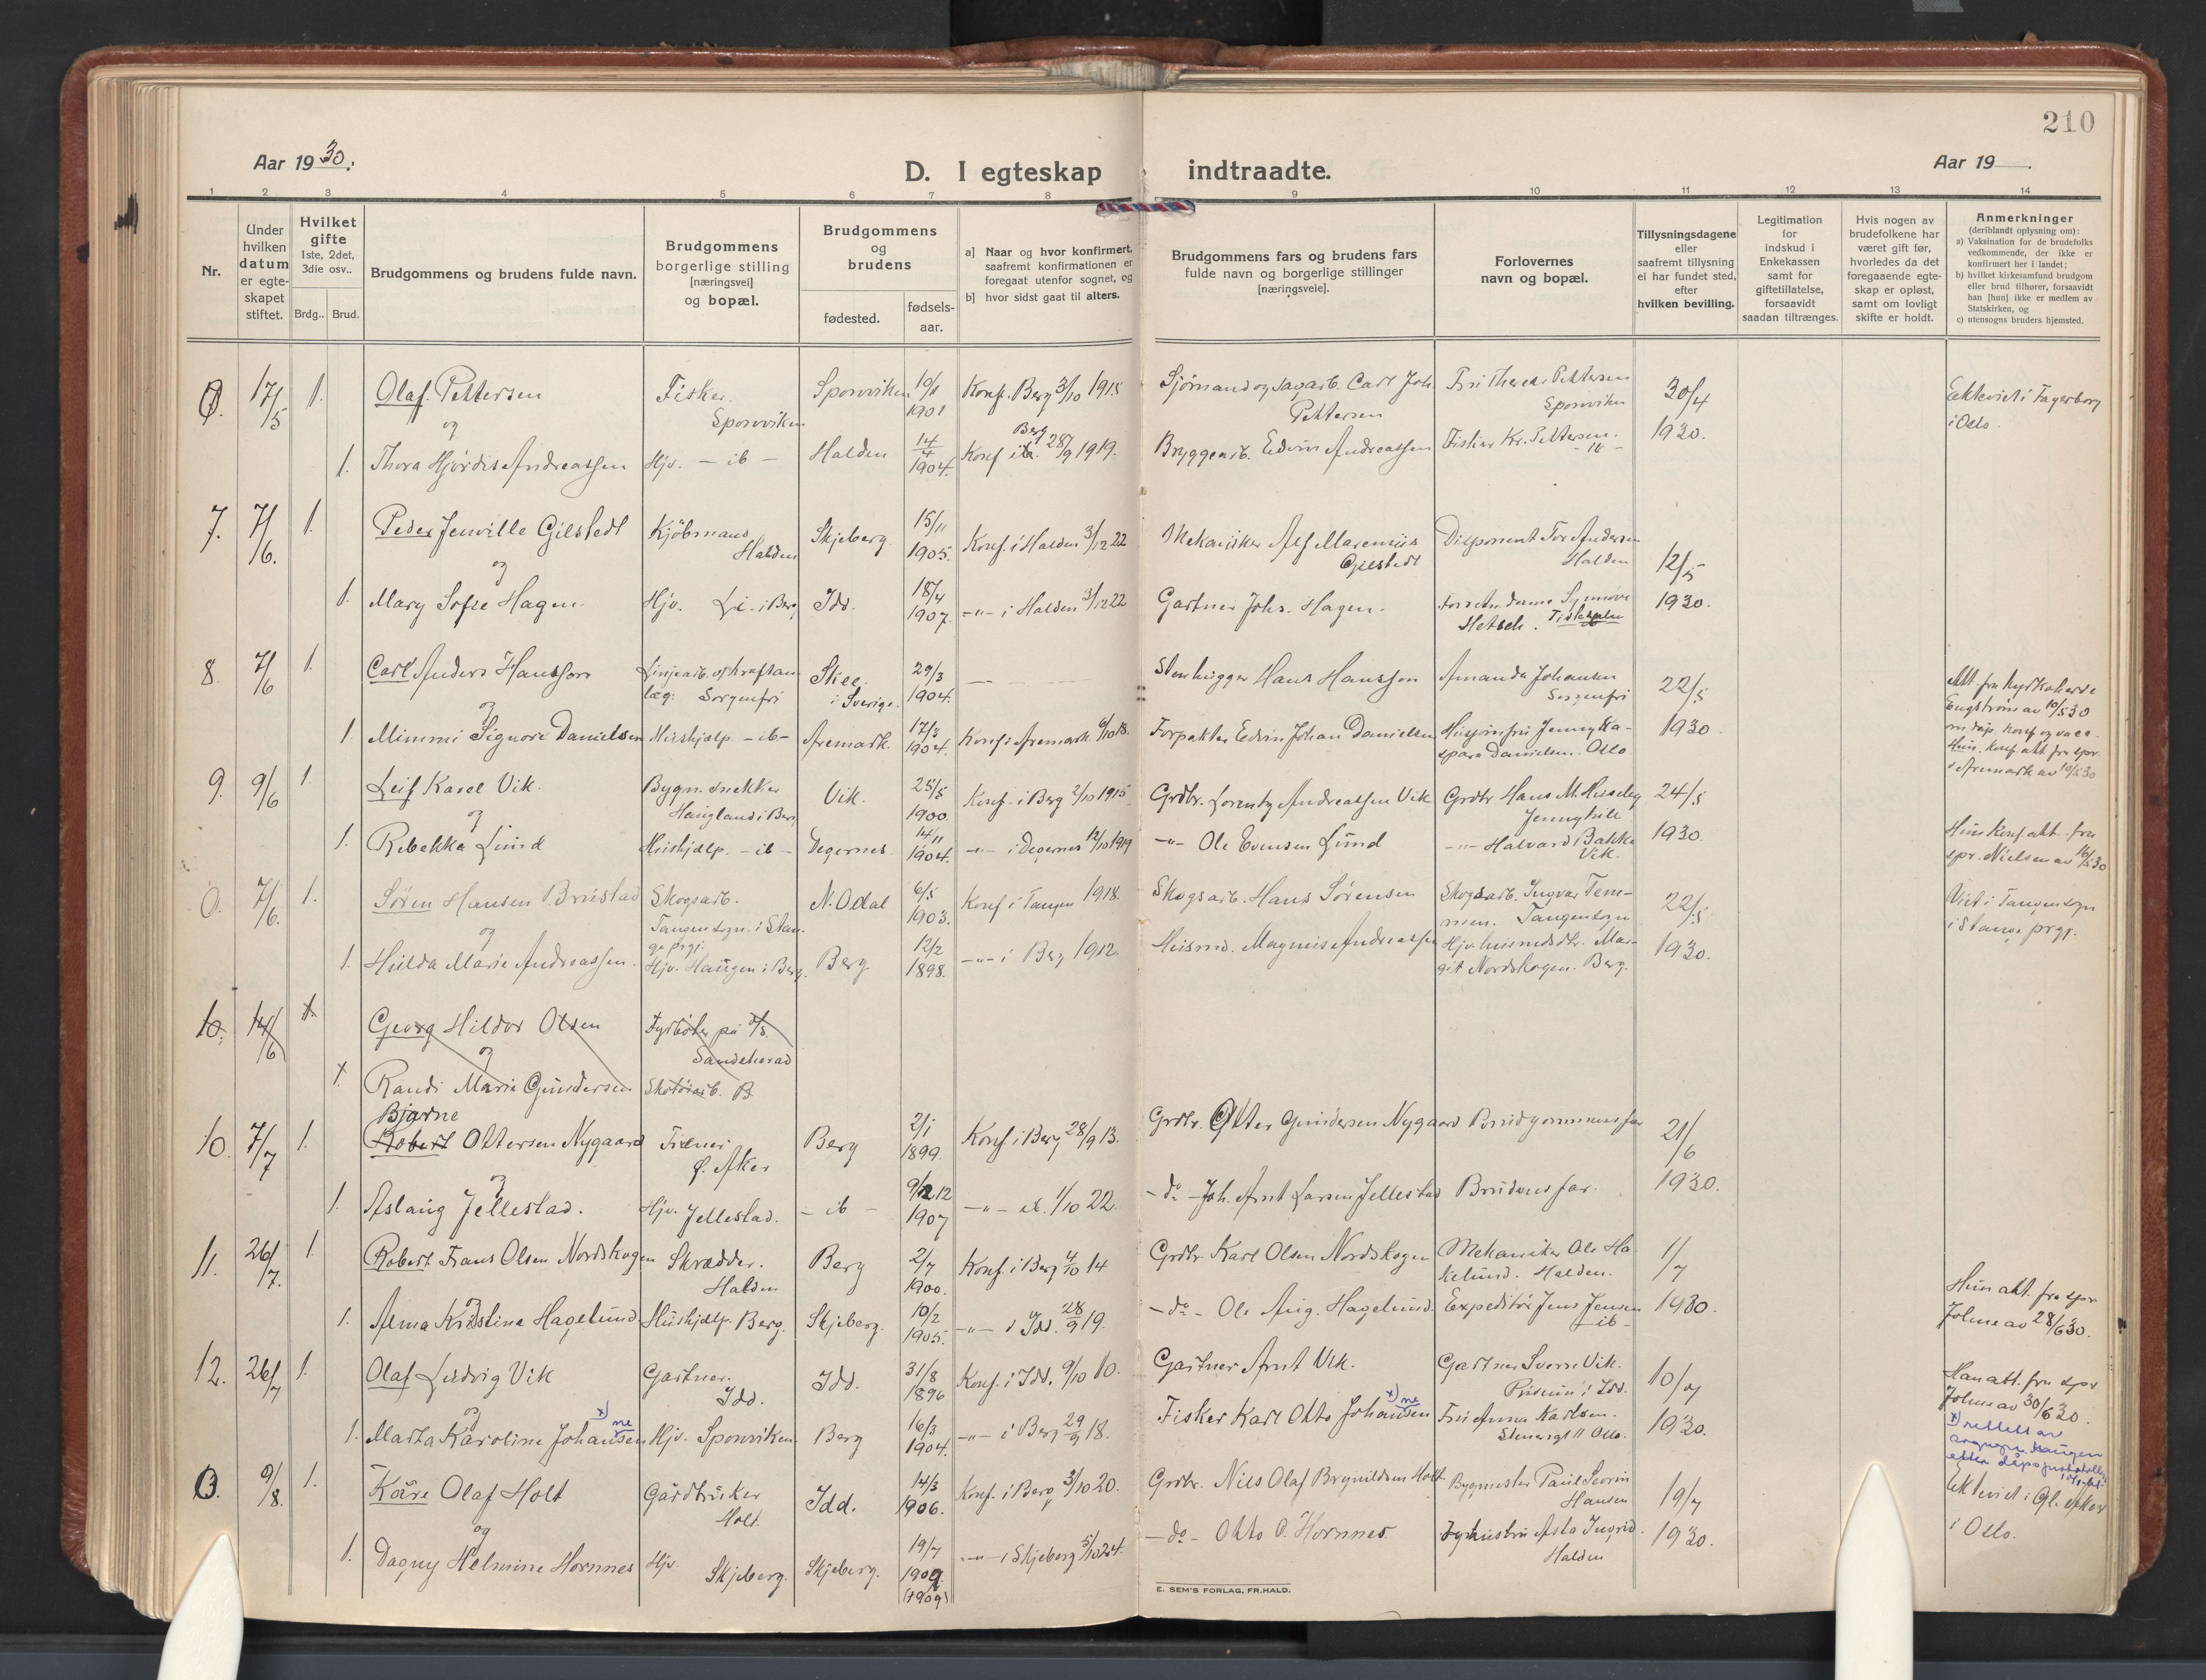 210
Aar 1930.
D. I egteskap indtraadte.
Aar 19 .
1 2 3 4 5 6 7 8 9 10 11 12 13 14
Nr.
Under hvilken datum er egteskapet stiftet.
Hvilket gifte 1ste, 2det, 3die osv..
Brdg.. Brud.
Brudgommens og brudens fulde navn.
Brudgommens borgerlige stilling [næringsvei] og bopæl.
Brudgommens og brudens
fødested.
fødsels-aar.
a] Naar og hvor konfirmert, saafremt konfirmationen er foregaat utenfor sognet, og
b] hvor sidst gaat til alters.
Brudgommens fars og brudens fars fulde navn og borgerlige stillinger [næringsveie].
Forlovernes navn og bopæl.
Tillysningsdagene eller saafremt tillysning ei har fundet sted, efter hvilken bevilling.
Legitimation for indskud i Enkekassen samt for giftetillatelse, forsaavidt saadan tiltrænges.
Hvis nogen av brudefolkene har været gift før, hvorledes da det foregaaende egteskap er opløst, samt om lovligt skifte er holdt.
Anmerkninger (deriblandt oplysning om):
a) Vaksination for de brudefolks vedkommende, der ikke er konfirmert her i landet;
b) hvilket kirkesamfund brudgom eller brud tilhører, forsaavidt han [hun] ikke er medlem av Statskirken, og
c) utensogns bruders hjemsted.
0. 17/5 1. Olaf Pettersen Fisker. Sponviken Sponviken 10/1 1901 Konf. Berg 3/10 1915 Sjømand og sagarb. Carl Joh. Pettersen Fru Therese Pettersen Sponviken 30/4 Ekteviet i Fagerborg i Oslo.
og
1. Thora Hjørdis Andreassen Hjv. - ib - Halden 14/4 1904. Konf i Berg 28/9 1919. Bryggearb. Edvin Andreassen Fisker Kr. Pettersen. - ib - 1930.
7. 7/6. 1. Peder Jenville Gilstedt Kjøbmand Halden Skjeberg 15/11 1905. Konf. i Halden 3/12 22 Mekaniker Alf Marenius Gilstedt Disponent Tor Andersen Halden 12/5
og
1. Mary Sofie Hagen. Hjv. Li i Berg Idd. 18/4 1907. -"- i Halden 3/12 22 Gartner Johs. Hagen. 1930.
8. 7/6 1. Carl Anders Hansson Linjearb. v/ kraftanlæg. Sorgenfri Skee i Sverige. 29/3 1904. Stenhugger Hans Hansson Amanda Johansen Sorgenfri 22/5 Att. fra kyrkoherde Engstrøm av 10/5 30 om dåp, konf og vacc.
og
1. Mimmi Signora Danielsen Hushjælp - ib - Aremark. 17/3 1904. Konf i Aremark 6/10 18. Forpakter Edvin Johan Danielsen Danielsen. Oslo 1930 Hun konf att fra spr. i Aremark av 10/5 30
9. 9/6 1. Leif Karel Vik. Bygn. snekker Haugland i Berg Vik. 25/5 1900. Konf. i Berg 2/10 1915. Grdbr. Lorentz Andreassen Vik Grdbr Hans M. 24/5
og
1. Rebekka Lund Hushjælp. - ib - Degernes 14/11 1904. -"- i Degernes 12/10 1919 -"- Ole Evensen Lund -"- Halvard Bakke Vik. 1930. Hun konf att. fra spr. Nielsen av 16/5 30
0. 7/6. 1. Søren Hansen Brustad Skogsarb. Tangen sogn. i Stange prgj. N. Odal 6/5 1903. Konf i Tangen 1918. Skogsarb. Hans Sørensen Skogsarb. Ingvar Temmen. Tangen sogn 22/5 Viet i Tangen sogn i Stange prgj.
og
1. Hulda Marie Andreassen. Hjv. Haugen i Berg. Berg. 12/2 1898. -"- i Berg 1912. Husmd. Magnus Andreassen Hjv. husmdsdtr. Margit Nordskogen. Berg. 1930.
10. 14/6 1. Georg Hildor Olsen Fyrbøter på D/S Sandeherad
og
1. Randi Marie Gundersen Skotøiarb. B
10. 7/7 1. Bjarne Robert Ottersen Nygaard Ø. Aker Berg 2/1 1899. Konf. i Berg 28/9 13. Grdbr. Otter Gundersen Nygaard Brudgommens far 21/6
og
1. Aslaug Jellestad. Hjv. Jellestad. - ib - 9/12 1907 -"- ib. 1/10 22. - do - Joh. Arnt Larsen Jellestad Brudens far. 1930.
11. 26/7. 1. Robert Frans Olsen Nordskogen Skrædder. Halden Berg 2/7 1900. Konf. i Berg 4/10 14 Grdbr. Karl Olsen Nordskogen Mekaniker Ole Hakelund. Halden. 1/7
og
1. Alma Kristine Hagelund Hushjælp. Berg. Skjeberg. 10/2 1905. -"- i Idd. 28/9 19. - do - Ole Aug. Hagelund. Expeditør Jens Jensen - ib - 1930. Hun att. fra spr Johne av 28/6 30.
12. 26/7 1. Olaf Ludvig Vik Gartner. Idd. Idd. 31/8 1896 Konf. i Idd. 9/10 10. Gartner Arnt Vik. Gartner Sverre Vik. i Idd. 10/7 Han att. fra spr Johne av 30/6 30.
og
1. Marta Karoline Johansen x) ne Hjv. Sponviken. Berg 16/3 1904. -"- i Berg 29/9 18. Fisker Karl Otto Johansen x) ne Fru Anna Karlsen. Oslo. 1930. x) rettet av sognepr. Haugen etter dåpsprotokollen
13. 9/8. 1. Kåre Olaf Holt Gårdbruker Holt. Idd. 14/3 1906. Konf. i Berg 3/10 20. Grdbr. Nils Olaf Brynildsen Holt Bygmester Paul Severin Hansen 19/7 Ekteviet i Gl. Aker i Oslo.
og
1. Dagny Helmine Hornnes Hjv. Skjeberg. Skjeberg. 19/7 1909. (1909) -"- i Skjeberg 5/10 24. - do - Otto O. Hornnes Asta Ingrid. Halden 1930.
E. SEM'S FORLAG, FR.HALD.